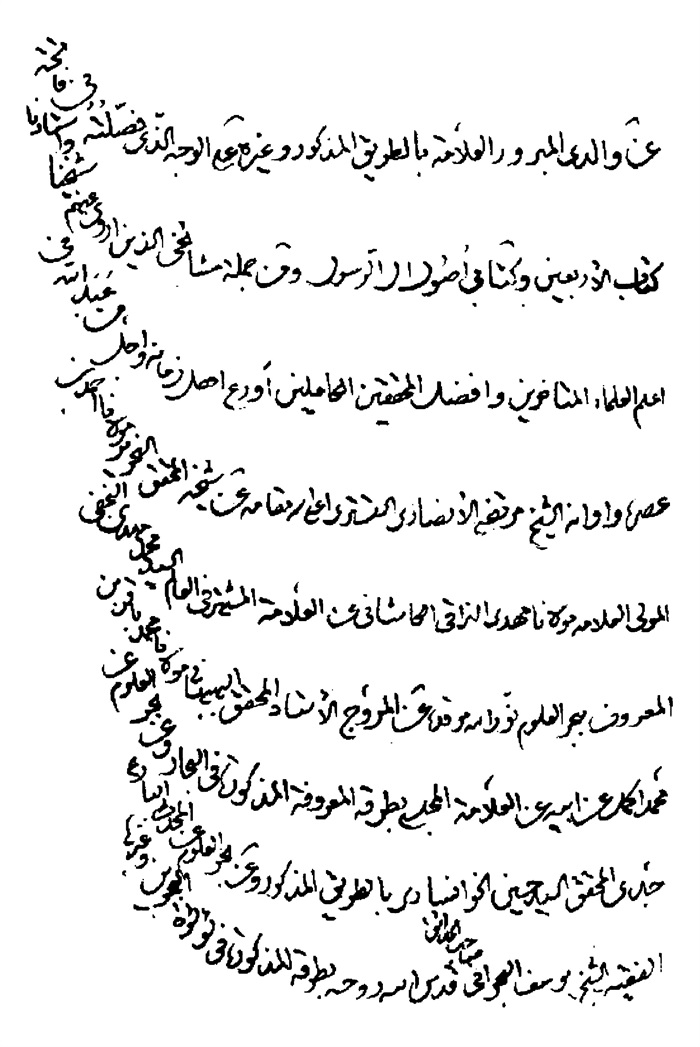 عن والدي المبرور العلامة بالطريق المذكور وغيره على الوجه الذي فصلته في خاتمة
كتاب الأربعين وكتابي أصول آل الرسول ومن جملة مشايخي الذين اروي عنهم شيخنا واستادنا
اعلم العلماء المتاخرين وافضل المحققين الكاملين أورع اهل زمانه واجل من عبد الله في
عصره واوانه الشيخ مرتضى الأنصاري التستري اعلى الله مقامه عن شيخه المحقق النحرير مولانا احمد بن
المولى العلامه مولانا مهدي النراقي الكاشاني عن العلامة المشتهر في العالم السيد محمد مهدي النجفي
المعروف ببحر العلوم نور الله مرقده عن المروج الأستاد المحقق البهبهاني مولانا محمد باقر بن
محمد اكمل عن ابيه عن العلامة المجلسي بطرقه المعروفة المذكورة في البحار وعن بحر العلوم عن
جدي المحقق السيد حسين الخوانساري بالطريق المذكور وعن بحر العلوم عن المحدث البارع
الفقيه الشيخ يوسف البحراني صاحب الحدائق قدس الله روحه بطرقه المذكورة في لؤلؤة البحرين وغيرها